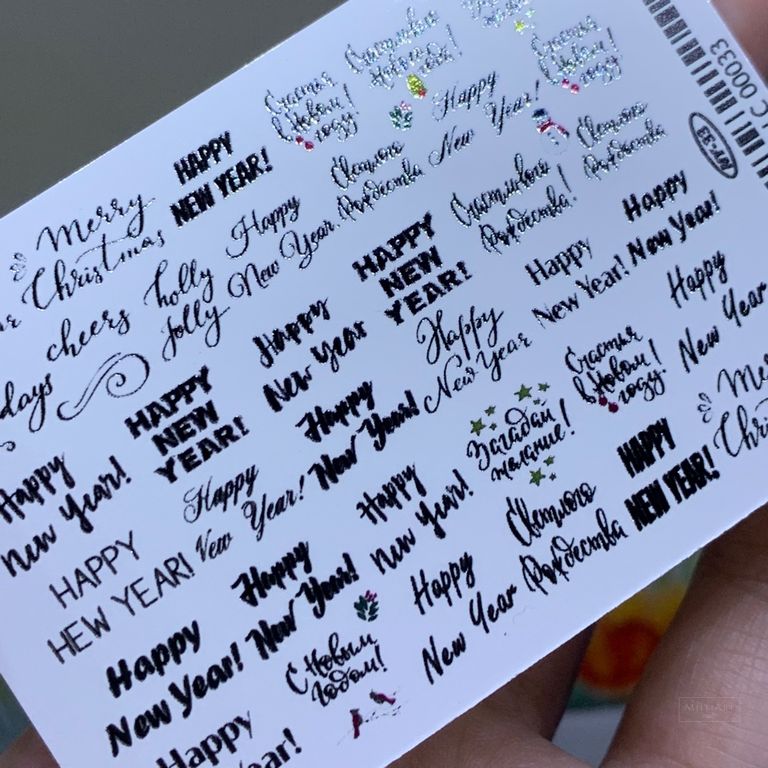 Счастливого
Счастья
в Новом
году!
Happy
New Year!
Счастья
в Новом
году!
LC 00033
Merry
Christmas
HAPPY
NEW YEAR!
Светлого
Рождества
Светлого
Рождества
cheers
holly
Jolly
Happy
New Year
Счастливого
Рождества!
Happy
New Year!
days
Happy
New Year
HAPPY
NEW
YEAR!
Happy
New Year!
Happy
New Year
HAPPY
NEW
YEAR!
Happy
New Year
Счастья
в Новом
году!
Happy
New Year!
Happy
New Year!
Happy
New Year!
Загадай
желание!
HAPPY
NEW YEAR!
Mer
Chri
HAPPY
HEW YEAR!
Happy
New Year!
Happy
New Year!
Светлого
Рождества
Happy
New Year!
С Новым
Годом!
Happy
New Year
Happy
Year!